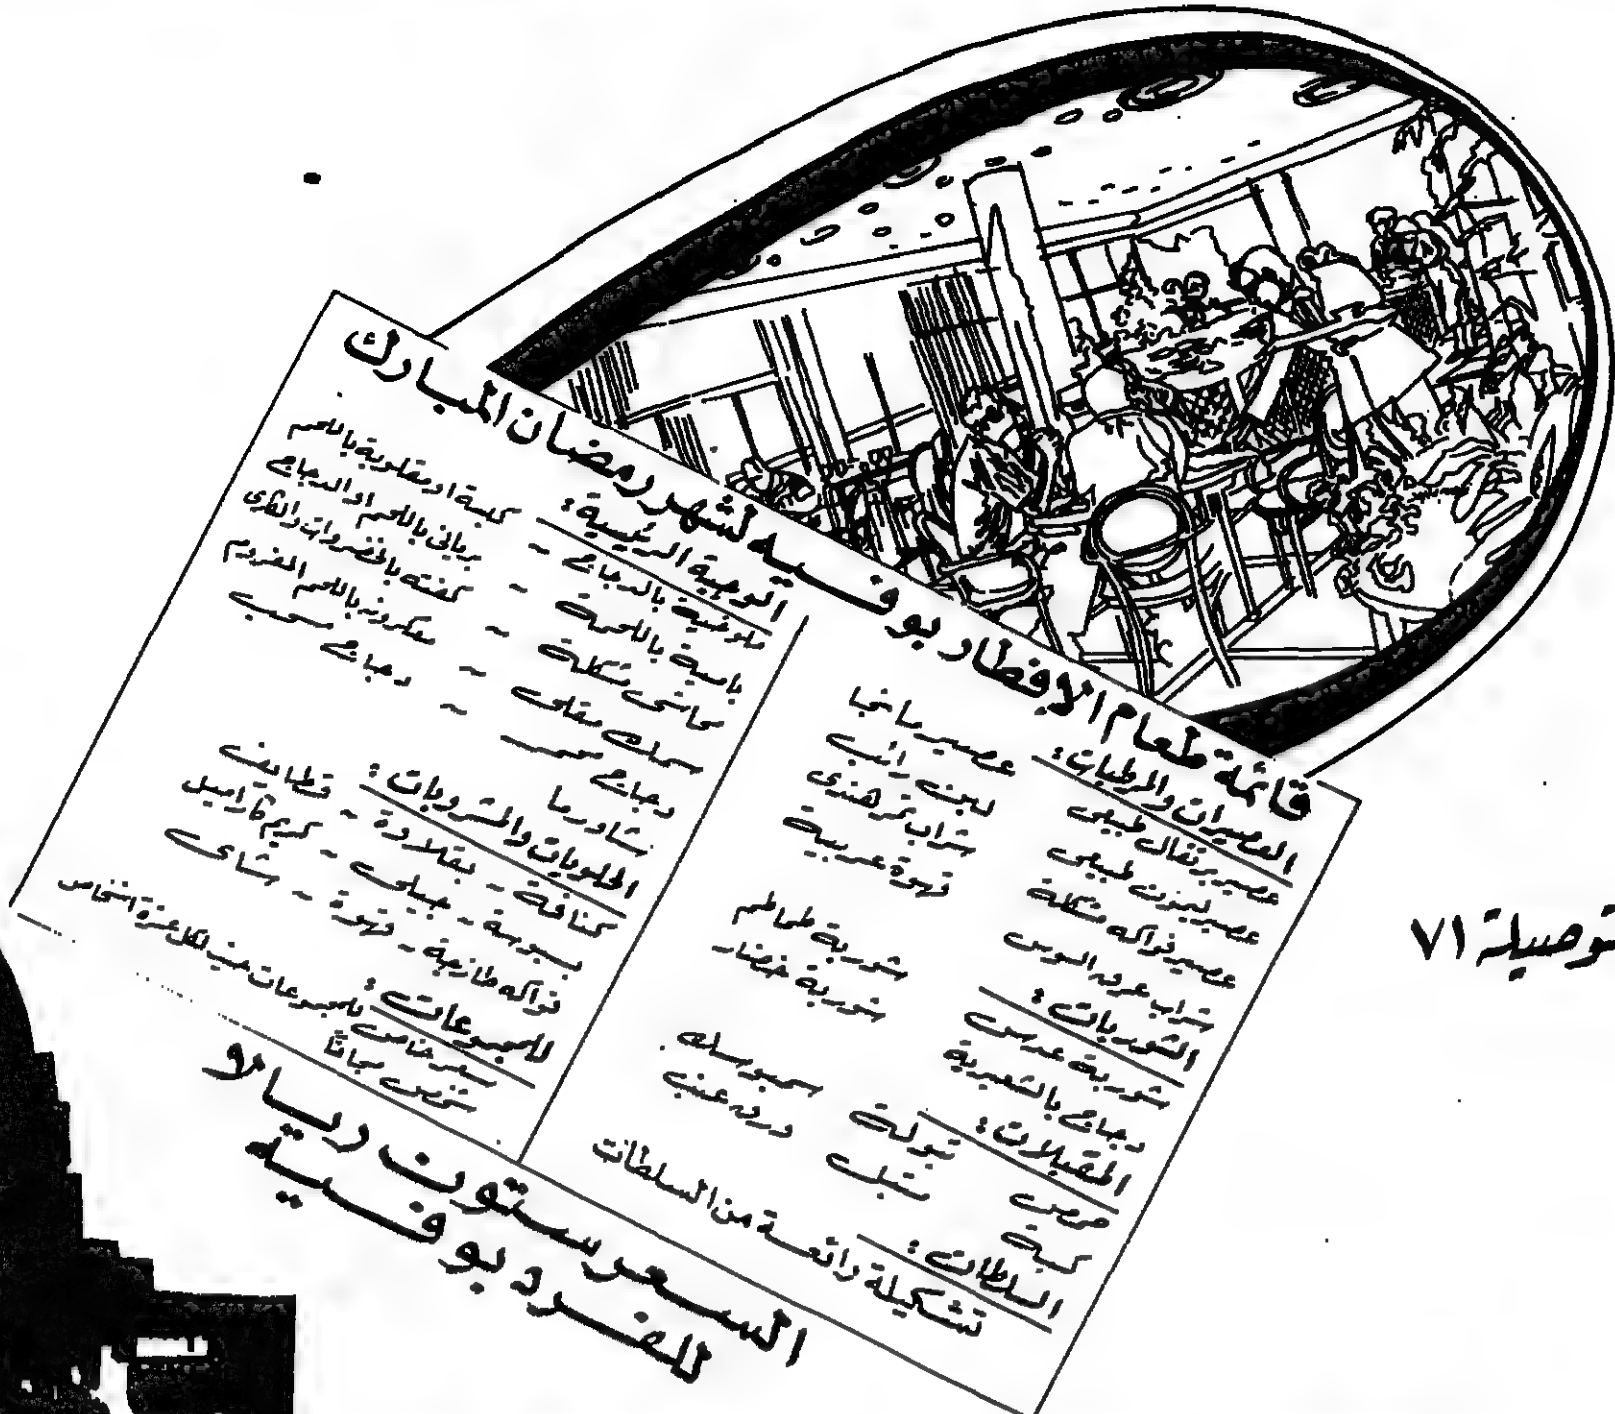 قائمة طعام الافطار بوفيه لشهر رمضان المبارك
العصيرات والمرطبات:
عصير برتقال طبيعي عصير مانجا
عصير ليمون طبيعي لبن رائب
عصير فواكه مشكلة شراب تمرهندي
شراب عرق السوس قهوة عربية
الشوربات:
شوربة عدس شوربة طماطم
دجاج بالشعيرية شوربة خضار
المقبلات:
حمص تبولة سمبوسك
كبة متبل ورق عنب
السلطات:
تشكيلة رائعة من السلطات
الوجبة الرئيسية:
ملوخية بالدجاج ~ كبسة او مقلوبة باللحم
بامية باللحمة ~ برياني باللحم او الدجاج
محاشي مشكلة ~ كفته بالخضروات والفرن
سمك مقلي ~ معكرونه باللحم المفروم
دجاج محمر ~ دجاج مسحب
شاورما
الحلويات والمشروبات:
كنافة ~ بقلاوة ~ قطايف
بسبوسة ~ جيلي ~ كريم كاراميل
فواكه طازجة ~ قهوة ~ شاي
للمجموعات:
سعر خاص للمجموعات حيث لكل عشرة اشخاص
شخص مجانا
السعر ستون ريالا
للفرد بوفيه
توصيلة ٧١